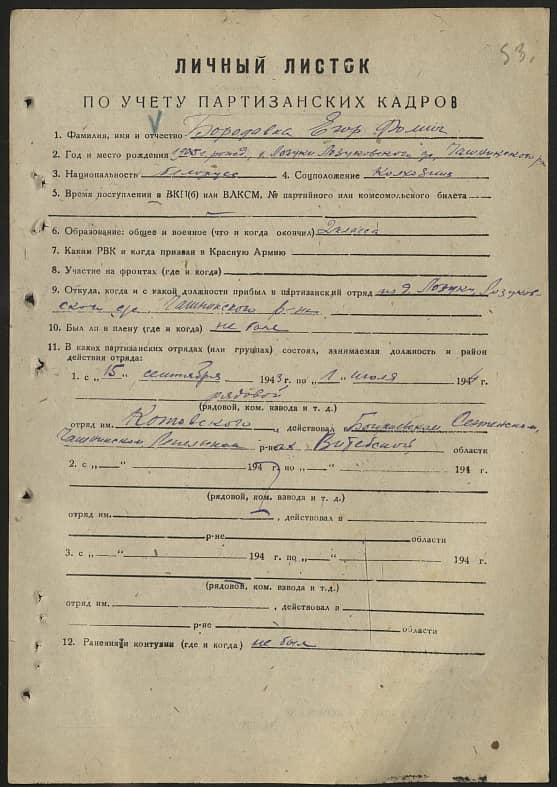 53.
ЛИЧНЫЙ ЛИСТОК
ПО УЧЕТУ ПАРТИЗАНСКИХ КАДРОВ
1. Фамилия, имя и отчество Бородавка Егор Фомич
2. Год и место рождения 1905 г. рожд. д. Лозуки Лозуковского с/с, Чашникского р-
3. Национальность белорус 4. Соцположение Колхозник
5. Время поступления в ВКП(б) или ВЛКСМ, № партийного или комсомольского билета —
6. Образование: общее и военное (что и когда окончил) 2 класса
7. Каким РВК и когда призван в Красную Армию
8. Участие на фронтах (где и когда)
9. Откуда, когда и с какой должности прибыл в партизанский отряд из д. Лозуки Лозуков-
ского с/с. Чашникского р-на
10. Был ли в плену (где и когда) не был
11. В каких партизанских отрядах (или группах) состоял, занимаемая должность и район
действия отряда:
1. с „15" сентября 1943 г. по „1" июля 1944 г.
рядовой
(рядовой, ком. взвода и т. д.)
отряд им. Котовского, действовал в Сенненском,
Чашникском Лепельском р-нах Витебской области
2. с „—" 194 г. по „—" 194 г.
(рядовой, ком. взвода и т. д.)
отряд им. , действовал в
р-не области
3. с „—" 194 г. по „—" 194 г.
(рядовой, ком. взвода и т.д.)
отряд им. , действовал в
р-не области
12. Ранения и контузии (где и когда) не был